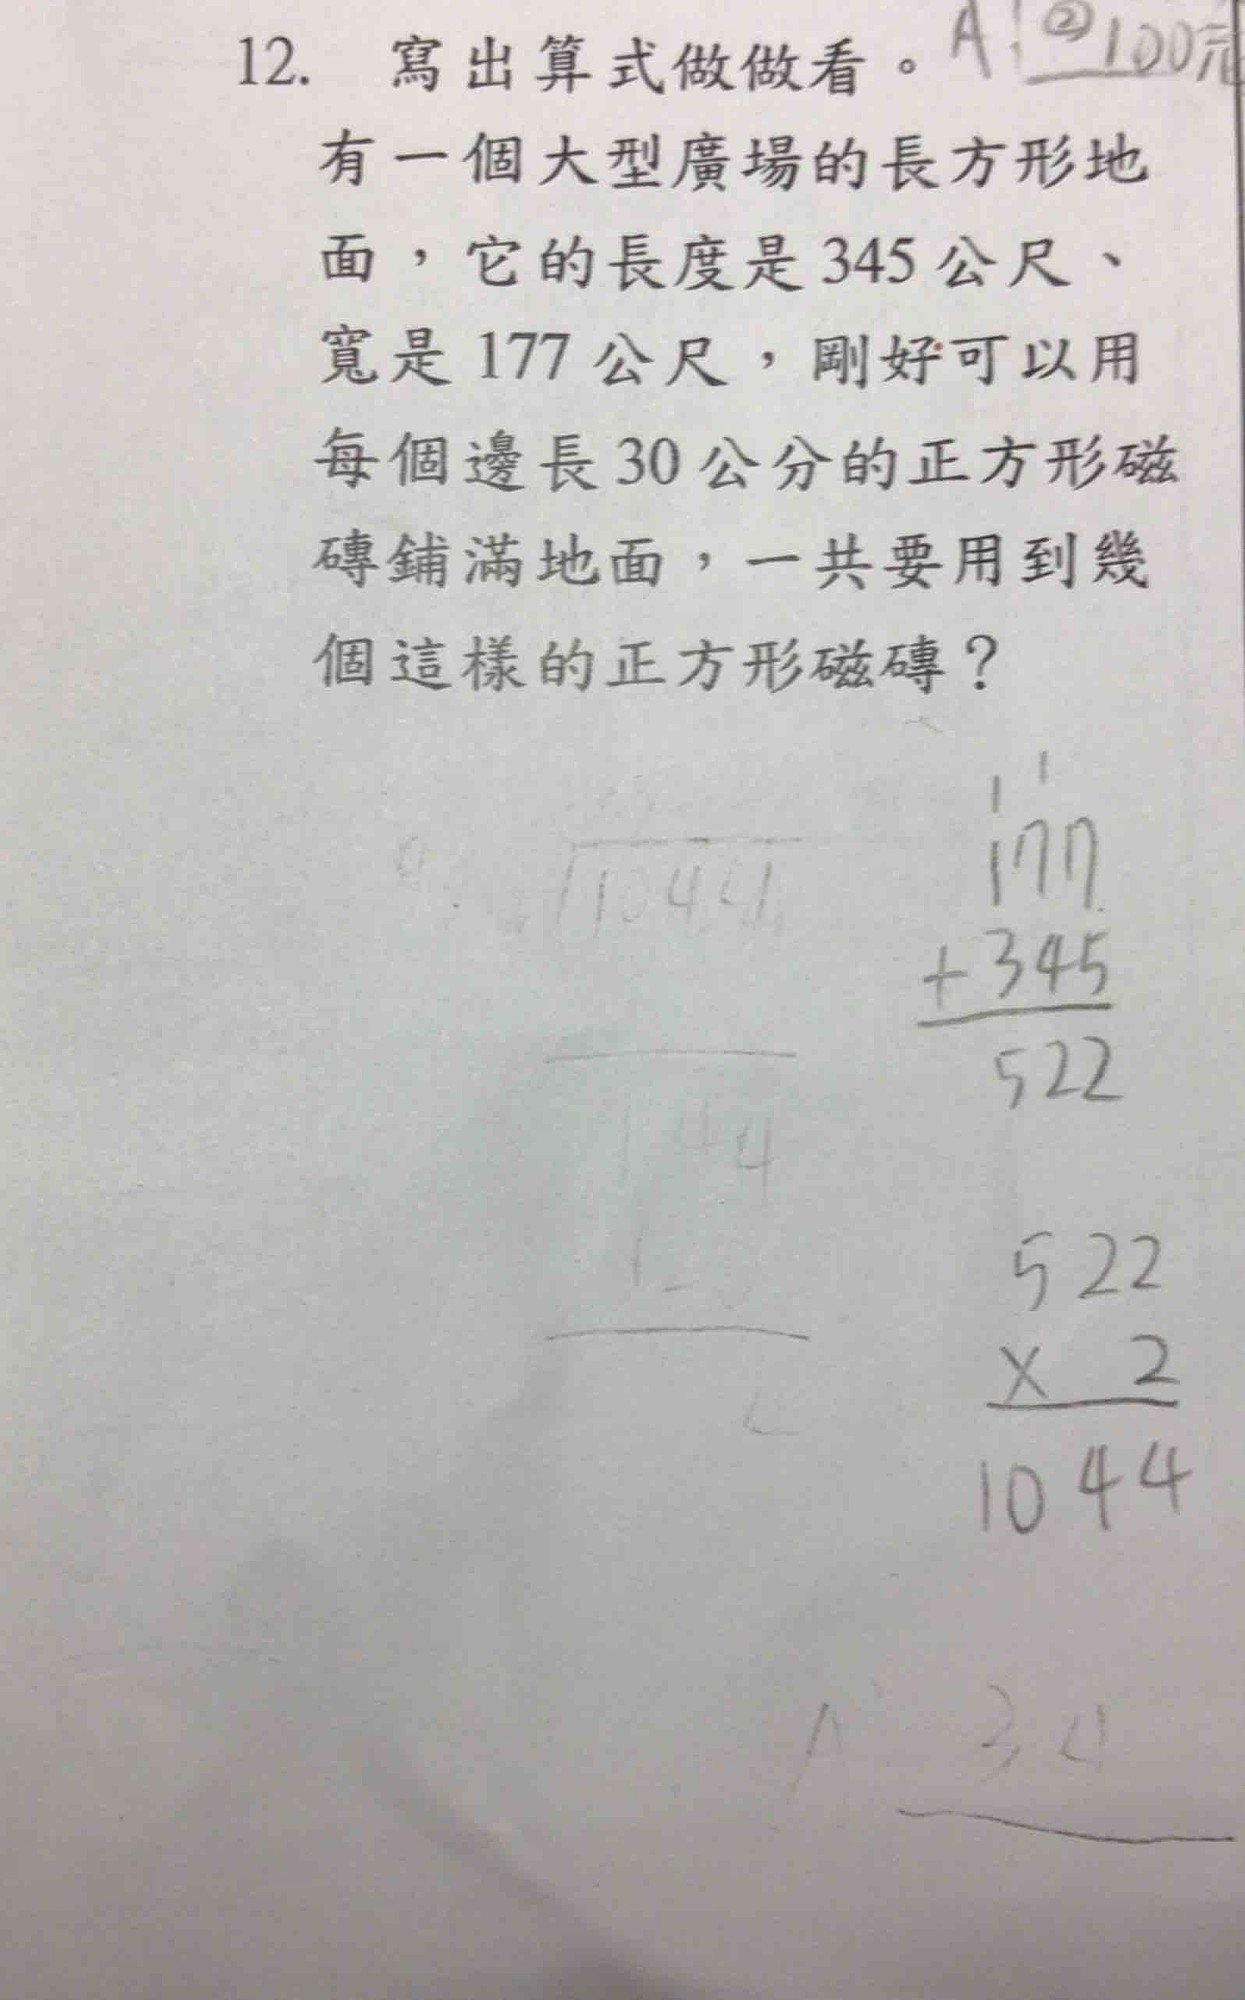 12. 寫出算式做做看。
A: ② 100元
有一個大型廣場的長方形地
面，它的長度是345公尺、
寬是177公尺，剛好可以用
每個邊長30公分的正方形磁
磚鋪滿地面，一共要用到幾
個這樣的正方形磁磚？
1 1
177
+ 345
522
1044
144
522
× 2
1044
A 34